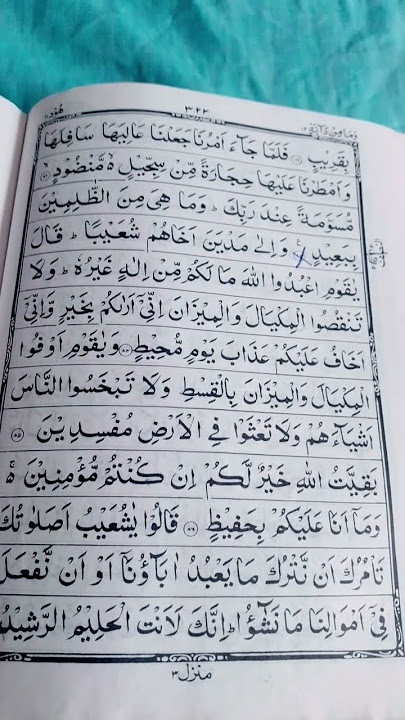 وَمَا مِنْ دَآبَّةٍ ١٢ ٣٢٢ هُوْد ١١
بِقَرِيْبٍ ﴿٨١﴾ فَلَمَّا جَآءَ اَمْرُنَا جَعَلْنَا عَالِيَهَا سَافِلَهَا
وَاَمْطَرْنَا عَلَيْهَا حِجَارَةً مِّنْ سِجِّيْلٍ ۙ مَّنْضُوْدٍ ﴿٨٢﴾
مُّسَوَّمَةً عِنْدَ رَبِّكَ ؕ وَمَا هِىَ مِنَ الظّٰلِمِيْنَ
بِبَعِيْدٍ ﴿٨٣﴾ وَاِلٰى مَدْيَنَ اَخَاهُمْ شُعَيْبًا ؕ قَالَ
يٰقَوْمِ اعْبُدُوا اللّٰهَ مَا لَكُمْ مِّنْ اِلٰهٍ غَيْرُهٗ ؕ وَلَا
تَنْقُصُوا الْمِكْيَالَ وَالْمِيْزَانَ اِنِّىْٓ اَرٰىكُمْ بِخَيْرٍ وَّاِنِّىْٓ
اَخَافُ عَلَيْكُمْ عَذَابَ يَوْمٍ مُّحِيْطٍ ﴿٨٤﴾ وَيٰقَوْمِ اَوْفُوا
الْمِكْيَالَ وَالْمِيْزَانَ بِالْقِسْطِ وَلَا تَبْخَسُوا النَّاسَ
اَشْيَآءَهُمْ وَلَا تَعْثَوْا فِى الْاَرْضِ مُفْسِدِيْنَ ﴿٨٥﴾
بَقِيَّتُ اللّٰهِ خَيْرٌ لَّكُمْ اِنْ كُنْتُمْ مُّؤْمِنِيْنَ ۚ ۵
وَمَآ اَنَا عَلَيْكُمْ بِحَفِيْظٍ ﴿٨٦﴾ قَالُوْا يٰشُعَيْبُ اَصَلٰوتُكَ
تَاْمُرُكَ اَنْ نَّتْرُكَ مَا يَعْبُدُ اٰبَآؤُنَآ اَوْ اَنْ نَّفْعَلَ
فِىْٓ اَمْوَالِنَا مَا نَشٰٓؤُا ؕ اِنَّكَ لَاَنْتَ الْحَلِيْمُ الرَّشِيْدُ
منزل ٣